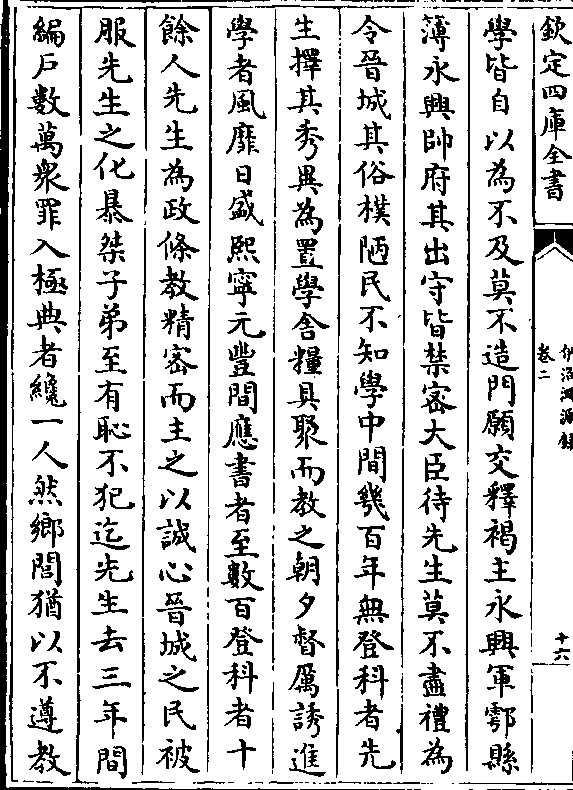 欽定四庫全書
伊洛淵源録
卷二
十六
學皆自以為不及莫不造門願交釋褐主永興軍鄠縣
薄永興帥府其出守皆禁密大臣待先生莫不盡禮為
令晉城其俗樸陋民不知學中間幾百年無登科者先
生擇其秀異為置學舍糧具聚而教之朝夕督厲誘進
學者風靡日盛熙寧元豐間應書者至數百登科者十
餘人先生為政條教精密而主之以誠心晉城之民被
服先生之化暴桀子弟至有恥不犯迄先生去三年間
編戸數萬衆罪入極典者纔一人然鄉閭猶以不遵教